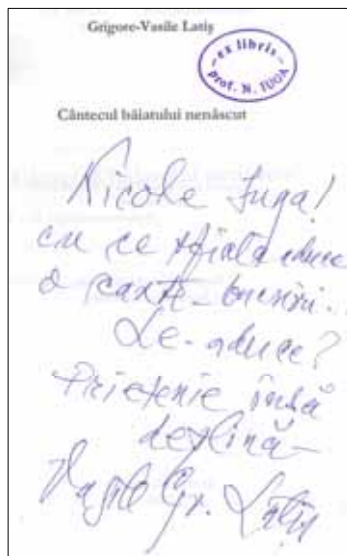 Grigore-Vasile Latiș
ex libris
prof. N. IUGA
Cântecul băiatului nenăscut
Nicolae Iuga!
cu ce sfială aduce
o carte
Le-aduce?
Prietenie însă
deplină
Vasile Gr. Latiș